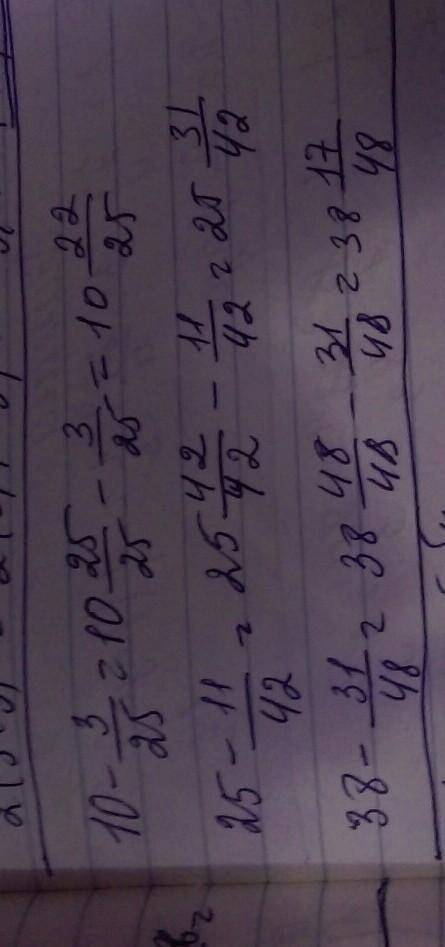 10 - 3/25 = 10 25/25 - 3/25 = 10 22/25
25 - 11/42 = 25 42/42 - 11/42 = 25 31/42
38 - 31/48 = 38 48/48 - 31/48 = 38 17/48